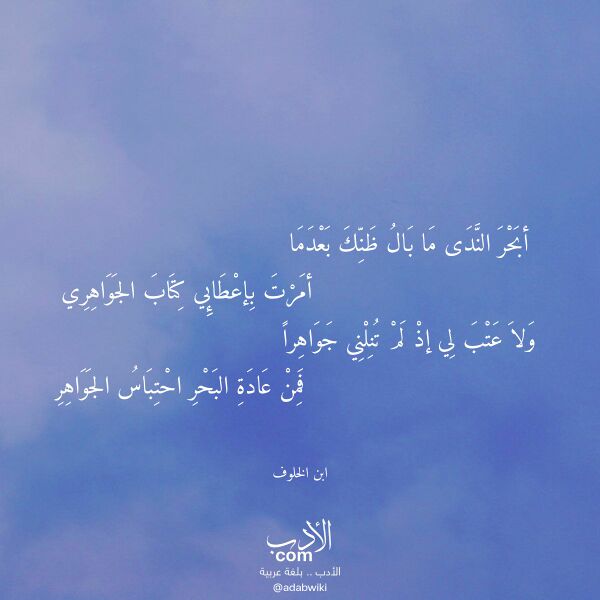 أبَحْرَ النَّدَى مَا بَالُ ظَنِّكَ بَعْدَمَا
أمَرْتَ بِإعْطَابِي كِتَابَ الجَوَاهِرِي
وَلاَ عَتْبَ لِي إذْ لَمْ تُنِلْنِي جَوَاهِراً
فَمِنْ عَادَةِ البَحْرِ احْتِبَاسُ الجَوَاهِرِ
ابن الخلوف
الأدب
com
الأدب .. بلغة عربية
@adabwiki